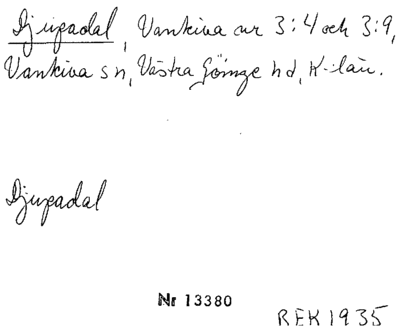 Djupadal, Vankiva nr 3:4 och 3:9,
Vankiva sn, Västra Göinge hd, K-län.
Djupadal
Nr 13380
REK 1935